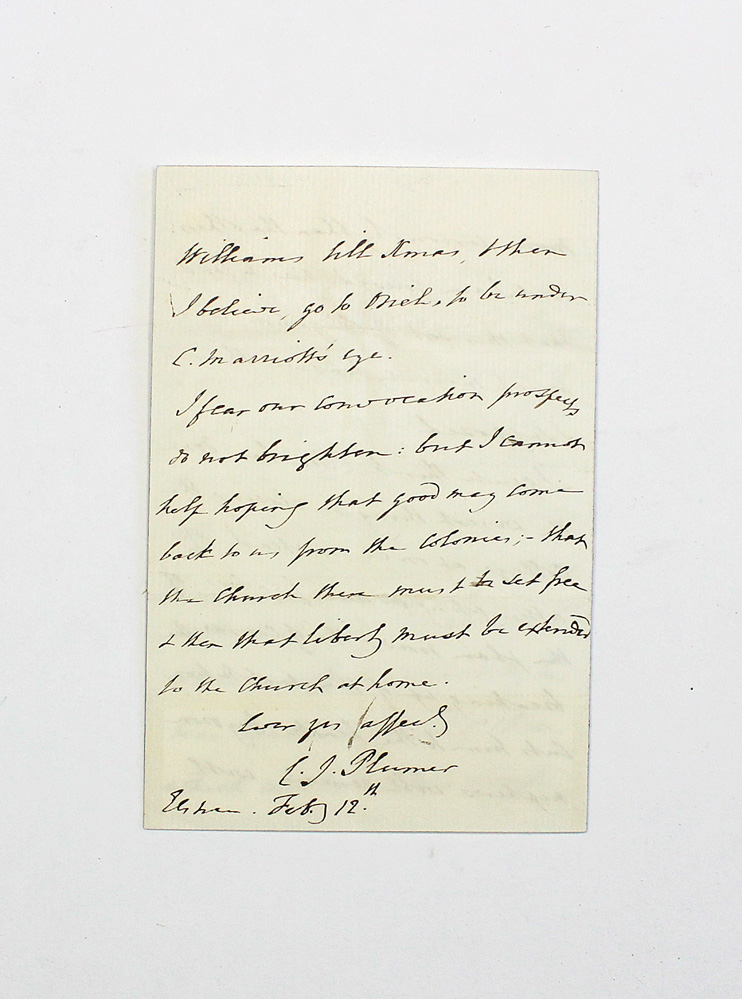 Williams till Xmas, & then
I believe, go to Oriel, to be under
C. Marriott's eye.
I fear our Convocation prospects
do not brighten : but I cannot
help hoping that good may come
back to us from the Colonies ;- that
the Church there must be set free
& then that liberty must be extended
to the Church at home.
Ever yrs affectly
C. J. Plumer
Elstree. Feby 12.th